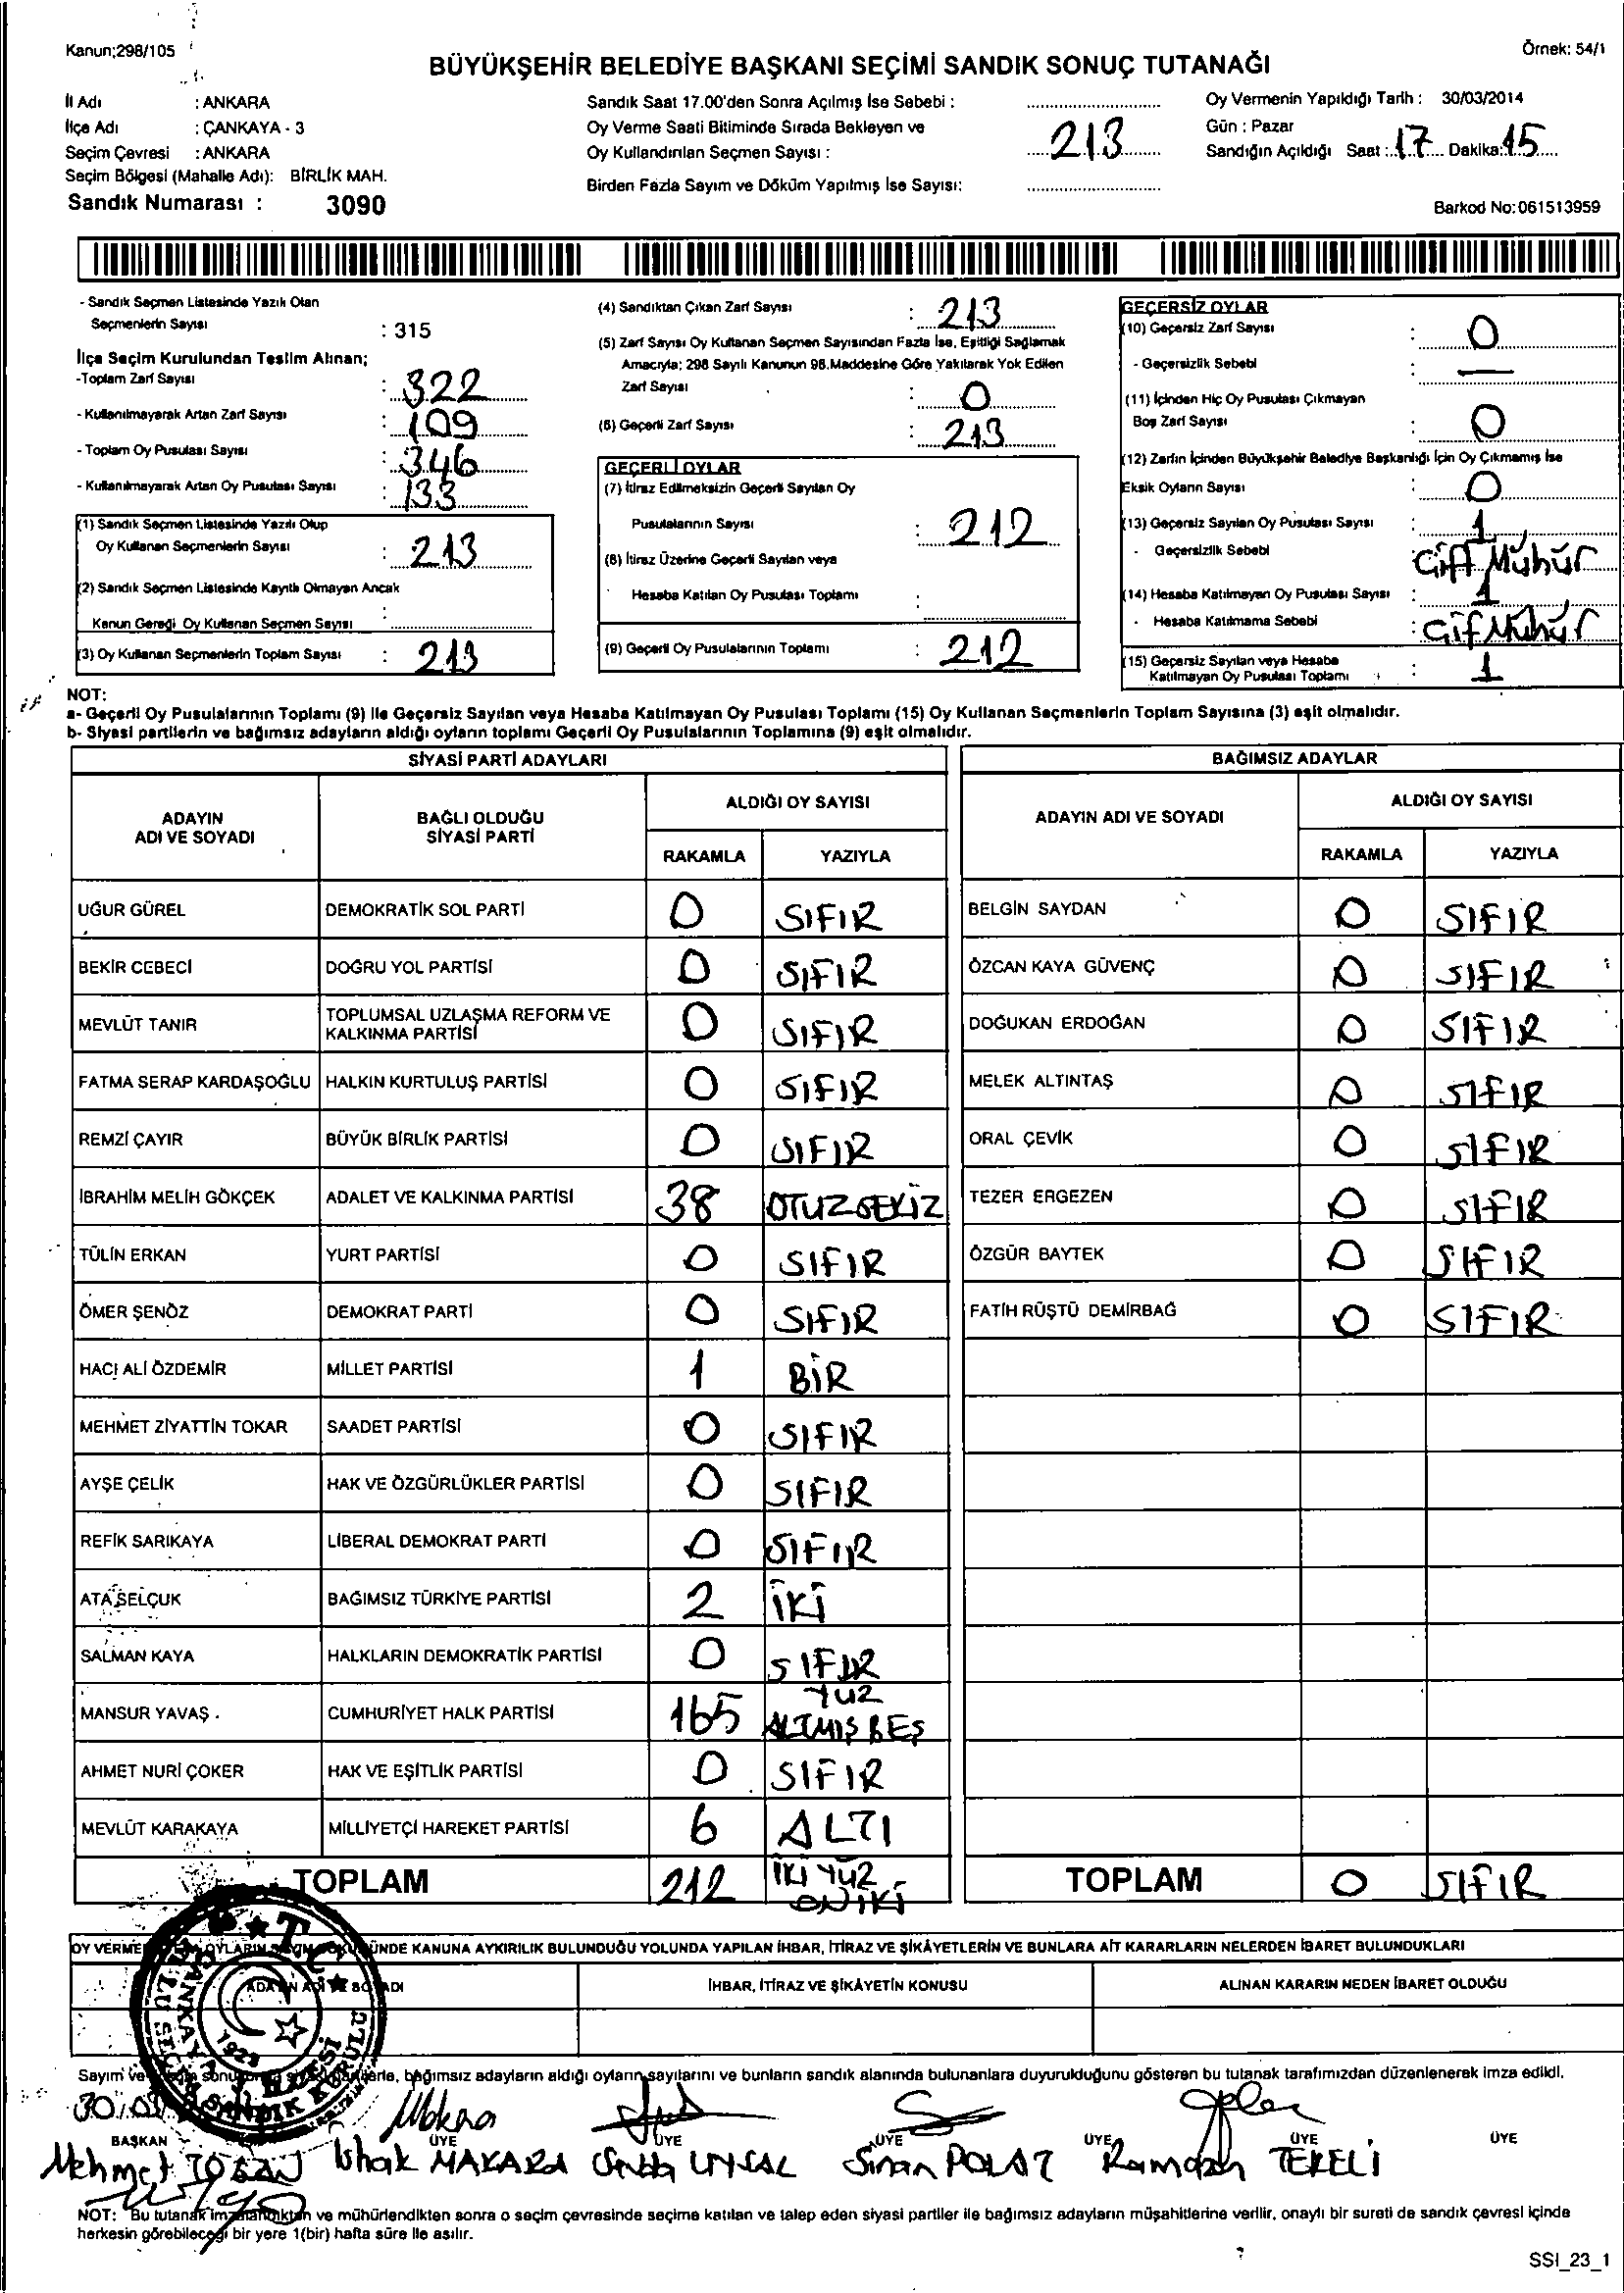 Kanun;298/105
Örnek: 54/1
BÜYÜKŞEHİR BELEDİYE BAŞKANI SEÇİMİ SANDIK SONUÇ TUTANAĞI
İl Adı : ANKARA
İlçe Adı : ÇANKAYA - 3
Seçim Çevresi : ANKARA
Seçim Bölgesi (Mahalle Adı): BİRLİK MAH.
Sandık Numarası : 3090
Sandık Saat 17.00'den Sonra Açılmış İse Sebebi :
Oy Verme Saati Bitiminde Sırada Bekleyen ve
Oy Kullandırılan Seçmen Sayısı : 213
Birden Fazla Sayım ve Döküm Yapılmış İse Sayısı:
Oy Vermenin Yapıldığı Tarih : 30/03/2014
Gün : Pazar
Sandığın Açıldığı Saat : 17 Dakika: 15
Barkod No:061513959
- Sandık Seçmen Listesinde Yazılı Olan
Seçmenlerin Sayısı : 315
İlçe Seçim Kurulundan Teslim Alınan;
-Toplam Zarf Sayısı : 322
- Kullanılmayarak Artan Zarf Sayısı : 109
- Toplam Oy Pusulası Sayısı : 346
- Kullanılmayarak Artan Oy Pusulası Sayısı : 133
(1) Sandık Seçmen Listesinde Yazılı Olup
Oy Kullanan Seçmenlerin Sayısı : 213
(2) Sandık Seçmen Listesinde Kayıtlı Olmayan Ancak
Kanun Gereği Oy Kullanan Seçmen Sayısı :
(3) Oy Kullanan Seçmenlerin Toplam Sayısı : 213
(4) Sandıktan Çıkan Zarf Sayısı : 213
(5) Zarf Sayısı Oy Kullanan Seçmen Sayısından Fazla İse, Eşitliği Sağlamak
Amacıyla; 298 Sayılı Kanunun 98.Maddesine Göre Yakılarak Yok Edilen
Zarf Sayısı : 0
(6) Geçerli Zarf Sayısı : 213
GEÇERLİ OYLAR
(7) İtiraz Edilmeksizin Geçerli Sayılan Oy
Pusulalarının Sayısı : 212
(8) İtiraz Üzerine Geçerli Sayılan veya
Hesaba Katılan Oy Pusulası Toplamı :
(9) Geçerli Oy Pusulalarının Toplamı : 212
GEÇERSİZ OYLAR
(10) Geçersiz Zarf Sayısı : 0
- Geçersizlik Sebebi : —
(11) İçinden Hiç Oy Pusulası Çıkmayan
Boş Zarf Sayısı : 0
(12) Zarfın İçinden Büyükşehir Belediye Başkanlığı İçin Oy Çıkmamış İse
Eksik Oyların Sayısı : 0
(13) Geçersiz Sayılan Oy Pusulası Sayısı : 1
- Geçersizlik Sebebi : Çift Mühür
(14) Hesaba Katılmayan Oy Pusulası Sayısı : 1
- Hesaba Katılmama Sebebi : Çif Mühür
(15) Geçersiz Sayılan veya Hesaba
Katılmayan Oy Pusulası Toplamı : 1
NOT:
a- Geçerli Oy Pusulalarının Toplamı (9) ile Geçersiz Sayılan veya Hesaba Katılmayan Oy Pusulası Toplamı (15) Oy Kullanan Seçmenlerin Toplam Sayısına (3) eşit olmalıdır.
b- Siyasi partilerin ve bağımsız adayların aldığı oyların toplamı Geçerli Oy Pusulalarının Toplamına (9) eşit olmalıdır.
SİYASİ PARTİ ADAYLARI
ADAYIN ADI VE SOYADI BAĞLI OLDUĞU SİYASİ PARTİ ALDIĞI OY SAYISI
RAKAMLA YAZIYLA
UĞUR GÜREL DEMOKRATİK SOL PARTİ 0 SIFIR
BEKİR CEBECİ DOĞRU YOL PARTİSİ 0 SIFIR
MEVLÜT TANIR TOPLUMSAL UZLAŞMA REFORM VE KALKINMA PARTİSİ 0 SIFIR
FATMA SERAP KARDAŞOĞLU HALKIN KURTULUŞ PARTİSİ 0 SIFIR
REMZİ ÇAYIR BÜYÜK BİRLİK PARTİSİ 0 SIFIR
İBRAHİM MELİH GÖKÇEK ADALET VE KALKINMA PARTİSİ 38 OTUZSEKİZ
TÜLİN ERKAN YURT PARTİSİ 0 SIFIR
ÖMER ŞENÖZ DEMOKRAT PARTİ 0 SIFIR
HACI ALİ ÖZDEMİR MİLLET PARTİSİ 1 BİR
MEHMET ZİYATTİN TOKAR SAADET PARTİSİ 0 SIFIR
AYŞE ÇELİK HAK VE ÖZGÜRLÜKLER PARTİSİ 0 SIFIR
REFİK SARIKAYA LİBERAL DEMOKRAT PARTİ 0 SIFIR
ATA SELÇUK BAĞIMSIZ TÜRKİYE PARTİSİ 2 İKİ
SALMAN KAYA HALKLARIN DEMOKRATİK PARTİSİ 0 SIFIR
MANSUR YAVAŞ . CUMHURİYET HALK PARTİSİ 165 YÜZ ALTMIŞ BEŞ
AHMET NURİ ÇOKER HAK VE EŞİTLİK PARTİSİ 0 SIFIR
MEVLÜT KARAKAYA MİLLİYETÇİ HAREKET PARTİSİ 6 ALTI
TOPLAM 212 İKİ YÜZ ONİKİ
BAĞIMSIZ ADAYLAR
ADAYIN ADI VE SOYADI ALDIĞI OY SAYISI
RAKAMLA YAZIYLA
BELGİN SAYDAN 0 SIFIR
ÖZCAN KAYA GÜVENÇ 0 SIFIR
DOĞUKAN ERDOĞAN 0 SIFIR
MELEK ALTINTAŞ 0 SIFIR
ORAL ÇEVİK 0 SIFIR
TEZER ERGEZEN 0 SIFIR
ÖZGÜR BAYTEK 0 SIFIR
FATİH RÜŞTÜ DEMİRBAĞ 0 SIFIR
TOPLAM 0 SIFIR
OY VERME OYLARIN KANUNA AYKIRILIK BULUNDUĞU YOLUNDA YAPILAN İHBAR, İTİRAZ VE ŞİKÂYETLERİN VE BUNLARA AİT KARARLARIN NELERDEN İBARET BULUNDUKLARI
İHBAR, İTİRAZ VE ŞİKÂYETİN KONUSU ALINAN KARARIN NEDEN İBARET OLDUĞU
T.C. ÇANKAYA 1923 SANDIK KURULU
Sayım ve bağımsız adayların aldığı oyların sayılarını ve bunların sandık alanında bulunanlara duyurulduğunu gösteren bu tutanak tarafımızdan düzenlenerek imza edildi.
BAŞKAN ÜYE ÜYE ÜYE ÜYE ÜYE ÜYE
Mehmet İshak MAKARA UYSAL Sinan POLAT Ramazan TEKELİ
NOT: Bu tutanak imzalandıktan ve mühürlendikten sonra o seçim çevresinde seçime katılan ve talep eden siyasi partiler ile bağımsız adayların müşahitlerine verilir, onaylı bir sureti de sandık çevresi içinde
herkesin görebileceği bir yere 1(bir) hafta süre ile asılır.
SSI_23_1